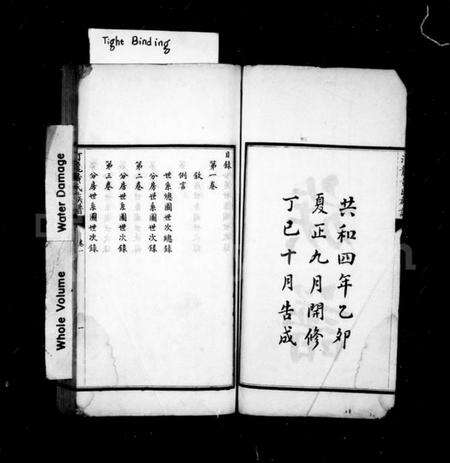 Tight Binding
Water Damage
Whole Volume
共和四年乙卯
夏正九月開修
丁巳十月告成
目錄
第一卷
敘
例言
世系總圖世次總錄
分房世系圖世次錄
第二卷
分房世系圖世次錄
第三卷
分房世系圖世次錄